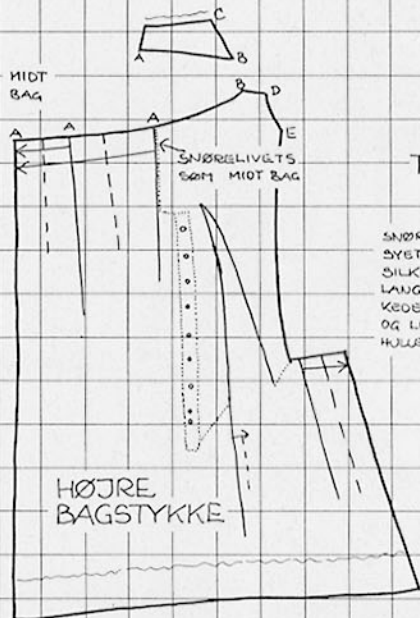 C
A
B
MIDT
BAG
B
D
A
A
A
E
SNØRELIVETS
SØM MIDT BAG
T
SNØR
SYET
SILK
LANG
KEDE
OG L
HULLE
HØJRE
BAGSTYKKE